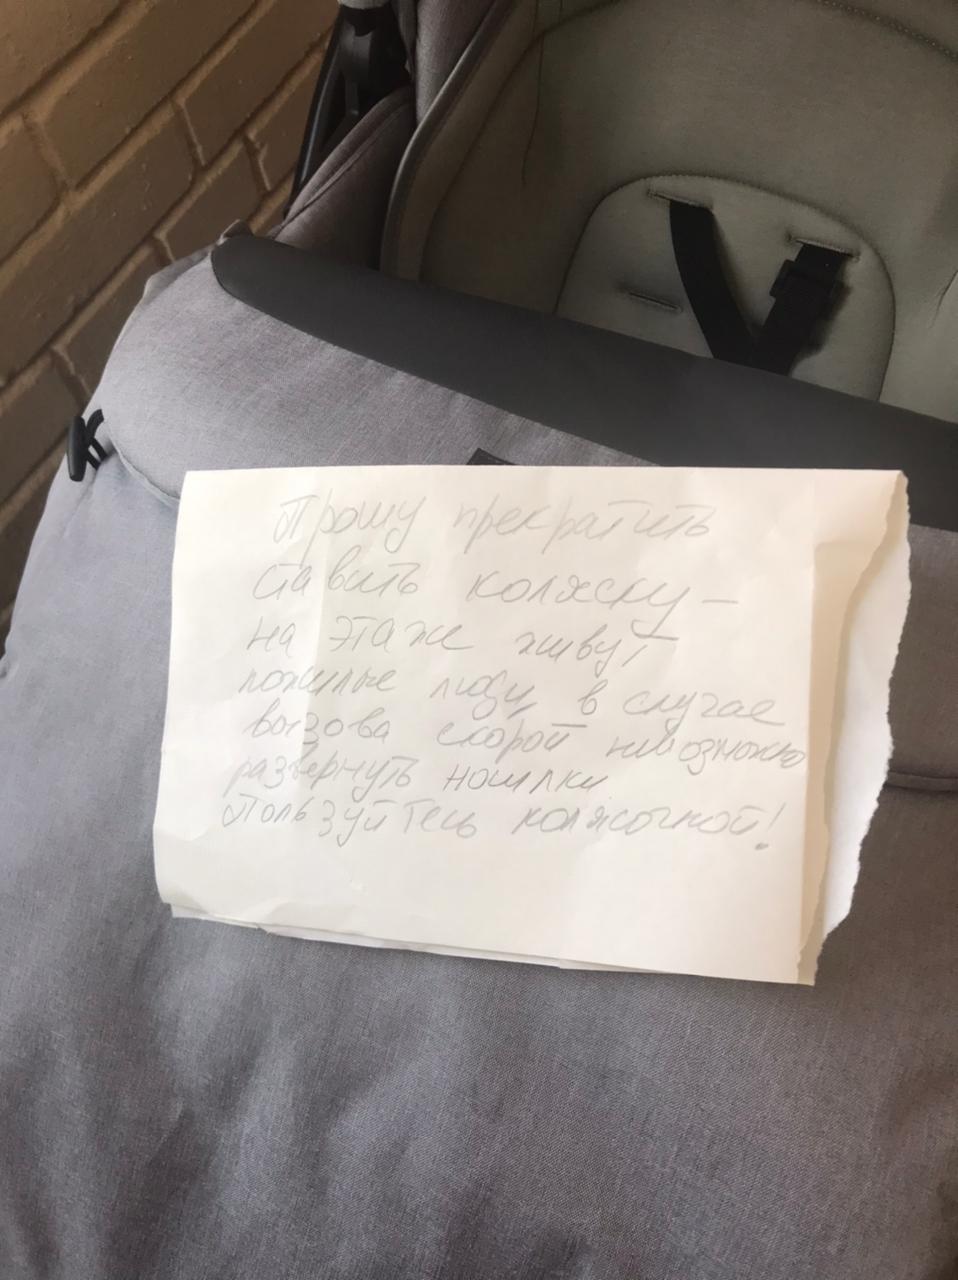 Прошу прекратить
ставить коляску –
на этаже живут
пожилые люди, в случае
вызова скорой невозможно
развернуть носилки
Пользуйтесь колясочной!